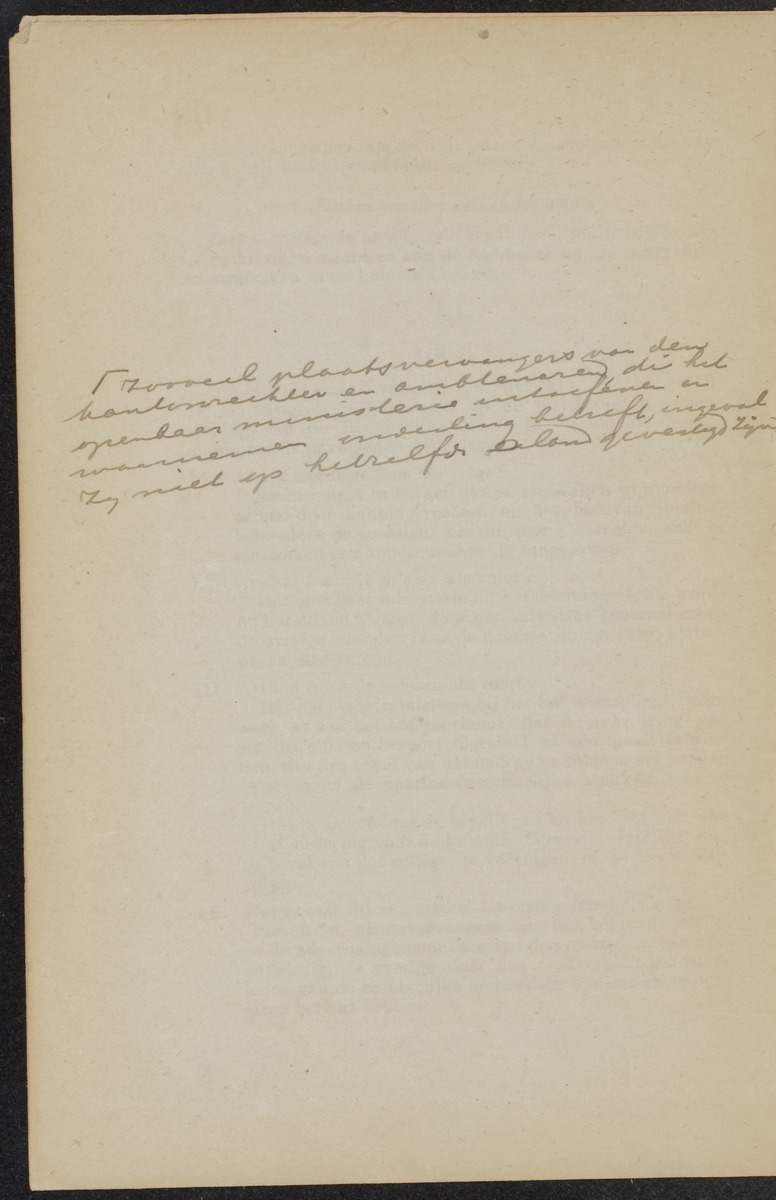 ⌈ zooveel plaatsvervangers van den
kantonrechter en ambtenaren, die het
openbaar ministerie uitoefenen en
waarnemen onderling betreft, ingeval
zij niet op hetzelfde eiland gevestigd zijn